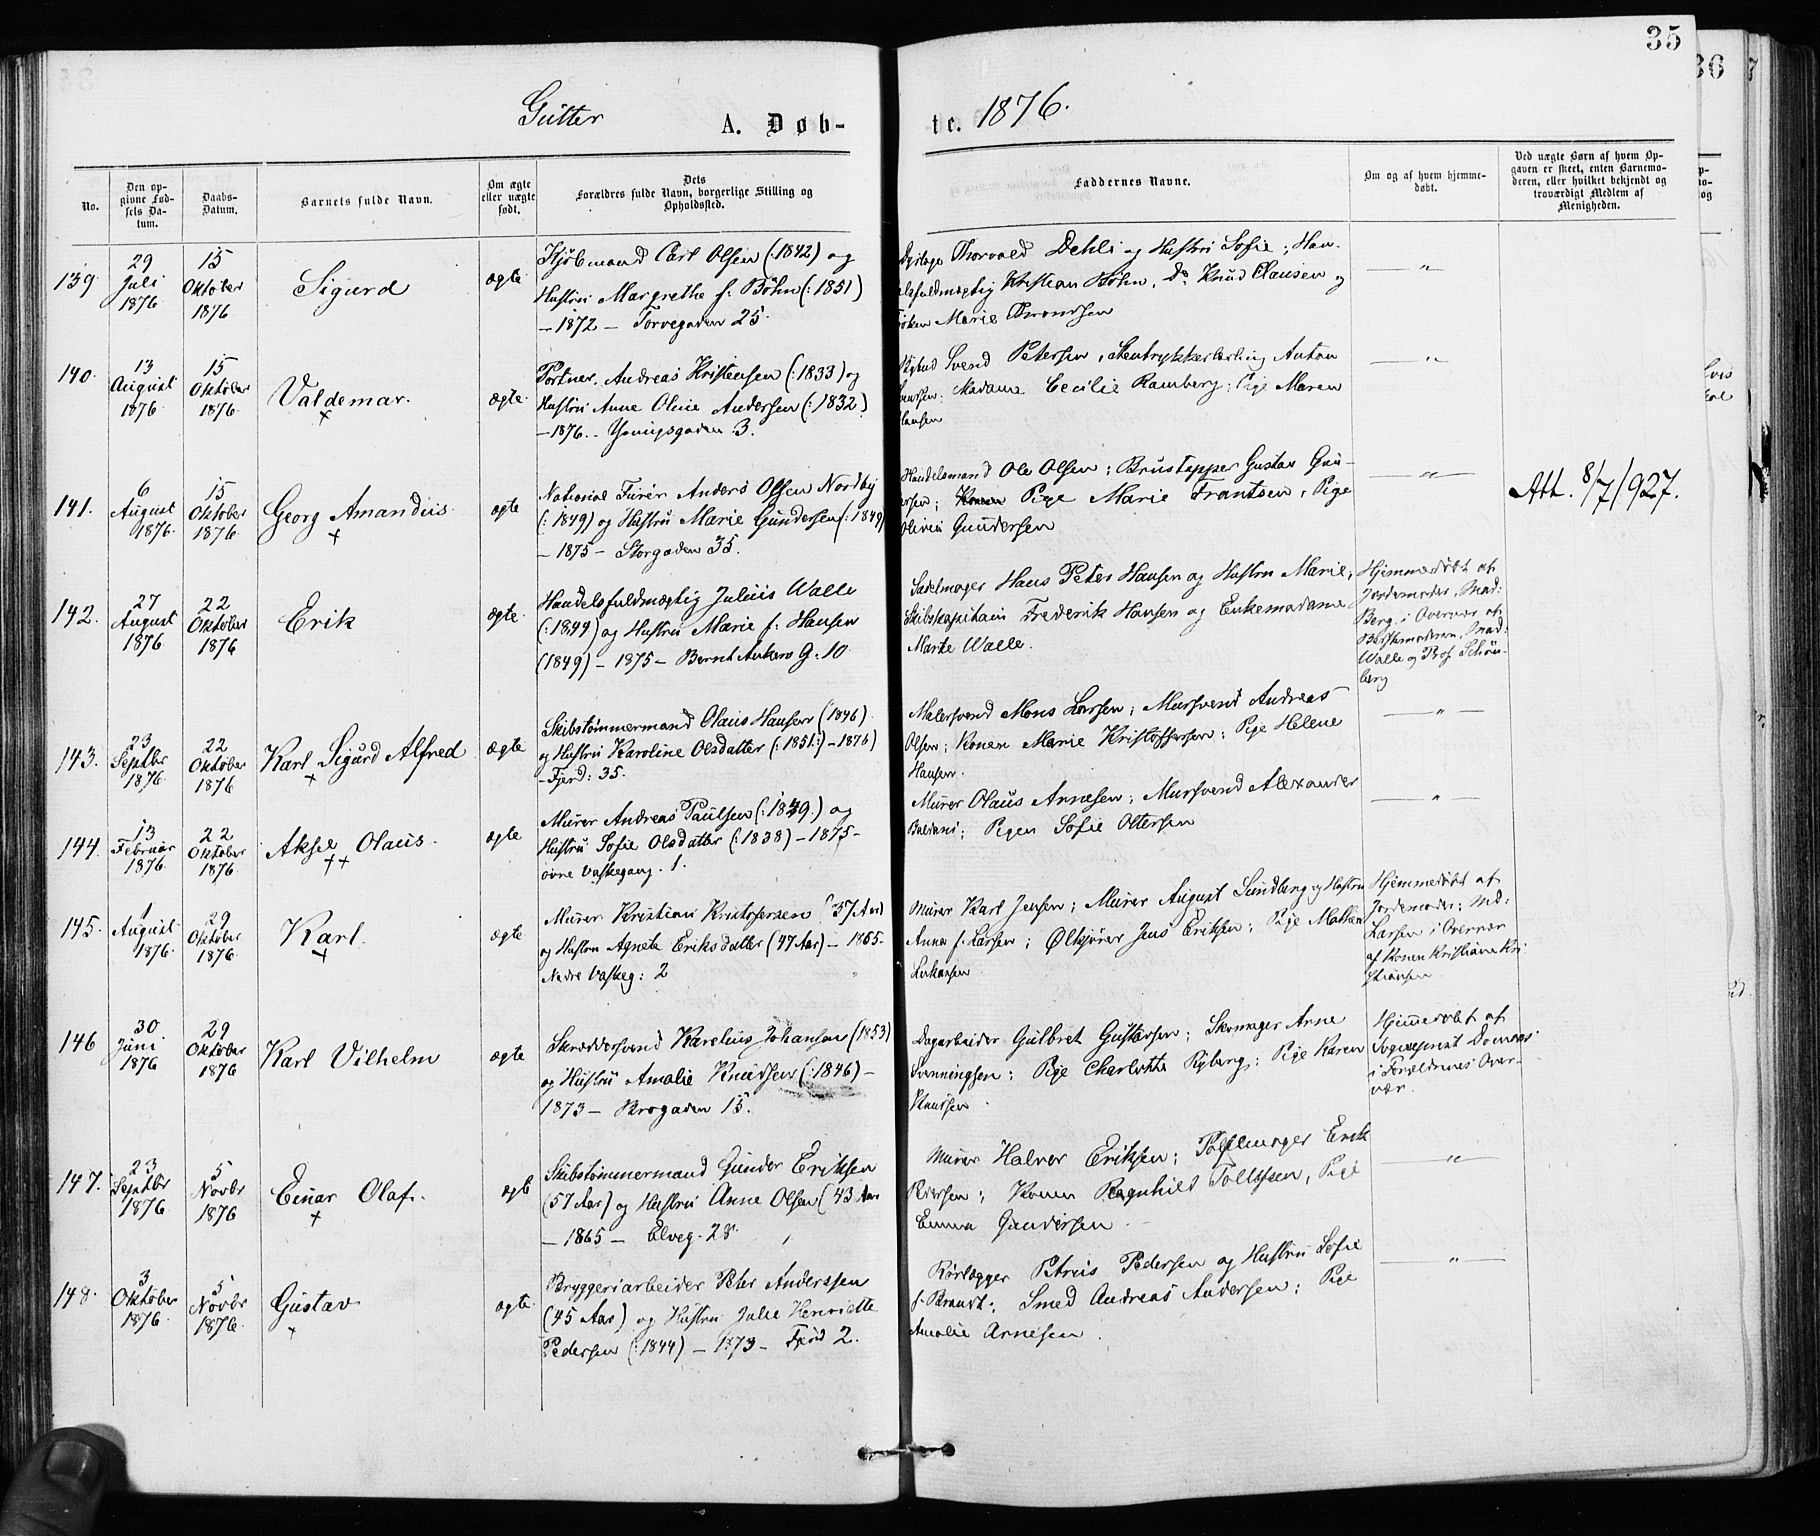 35
36
Gutter
A. Døb-
te. 1876.
No.
Den opgivne Fødsels Datum.
Daabs-Datum.
Barnets fulde Navn.
Om ægte eller uægte født.
Dets Forældres fulde Navn, borgerlige Stilling og Opholdssted.
Faddernes Navne.
Om og af hvem hjemmedøbt.
Ved uægte Børn af hvem Opgaven er skeet, enten Barnemoderen, eller hvilket bekjendt og troværdigt Medlem af Menigheden.
139
29 Juli 1876
15 Oktober 1876
Sigurd
ægte
Kjøbmand Carl Olsen (:1842) og
Hustru Margrethe f: Bøhn (:1851)
- 1872 - Torvegaden 25.
Thorvald Dehli og Hustru Sofie; Han-
Kristian Bøhn, Do Knud Clausen og
Marie Throndsen
- " -
140.
13 August 1876
15 Oktober 1876
Valdemar.
+
ægte.
Portner. Andreas Kristensen (:1833) og
Hustru Anne Oline Andersen (:1832)
- 1876. - Youngsgaden 3.
Svend Petersen, Stentrykkerlærling Anton
Madame Cecilie Ramberg; Pige Maren
Hansen
- " -
141.
6 August 1876.
15 Oktober 1876
Georg Amandus.
+
ægte
National Furér Anders Olsen Nordby
(:1849) og Hustru Marie Gundersen (:1849)
- 1875 - Storgaden 35.
Handelsmand Ole Olsen; Brustapper Gustav Gun-
ersen; Konen Pige Marie Frantsen, Pige
Olivia Gundersen
- " -
Att. 8/7 1927.
142.
27 August 1876
22 Oktober 1876
Erik
ægte.
Handelsfuldmægtig Julius Walle
(:1849) og Hustru Marie f: Hansen
(1849) - 1875 - Bernt Ankers G. 10
Sadelmager Hans Peter Hansen og Hustru Marie,
Skibskapitain Frederik Hansen og Enkemadame
Marie Walle.
Hjemmedøbt af
Jordemoder, Mad:
Berg. i Overvær af
Bestemoderen, Mad:
Walle og Prof. Schøn-
berg
143.
23 Septbr 1876
22 Oktober 1876
Karl Sigurd Alfred
+
ægte
Skibstømmermand Olaus Hansen (1846)
og Hustru Karoline Olsdatter (:1851:) - 1876)
- Fjerd: 35.
Malersvend Mons Larsen; Mursvend Andreas
Olsen; Konen Marie Kristoffersen: Pige Helene
Hansen.
- " -
144.
13 Februar 1876
22 Oktober 1876.
Aksel Olaus.
++
ægte
Murer Andreas Paulsen (:1849.) og
Hustru Sofie Olsdatter (:1838) - 1875 -
øvre Vaskegang. 1.
Murer Olaus Arnesen; Mursvend Alexander
Baldani; Pigen Sofie Ottersen
- " -
145.
1 August 1876
29 Oktober 1876.
Karl.
+
ægte
Murer Kristian Kristofersen (37 Aar)
og Hustru Agnete Eriksdatter (47 Aar) - 1865-
Nedre Vaskeg: 2
Murer Karl Jensen; Murer August Sundberg og Hustru
Anna f. Larsen; Ølkjører Jens Eriksen; Pige Mathea
Hjemmedøbt af
Jordemoder; Md:
Larsen i Overvær
af Konen Kristiane Kri-
stiansen
146
30 Juni 1876
29 Oktober 1876
Karl Vilhelm
ægte
Skræddersvend Karelius Johansen (1853)
og Hustru Amalie Knudsen (:1846) -
1873 - Brogaden 15.
Dagarbeider Gulbret Gustavsen; Skomager Arne
Svenningsen; Pige Charlotte Ryberg; Pige Karen
Knudsen.
Hjemmedøbt af
Sogneprest Domaas
i Forældrenes Over-
vær.
147.
23 Septbr 1876
5 Novbr 1876
Einar Olaf.
+
ægte
Skibstømmermand Gunder Eriksen
(57 Aar) og Hustru Anne Olsen (43 Aar
- 1865 - Elveg. 28.
Murer Halvor Eriksen; Erik
Pedersen; Konen Ragnhild Tollefsen, Pige
Emma Gundersen
- " -
148.
3 Oktober 1876
5 Novbr 1876.
Gustav
+
ægte.
Bryggeriarbeider Peter Anderssen
(45 Aar) og Hustru Julie Henriette
Pedersen (:1844) - 1873 - Fjerd 2.
Rørlægger Petrus Pedersen og Hustru Sofie
f. Brandt; Smed Andreas Andersen; Pige
Amalie Arnesen.
- " -